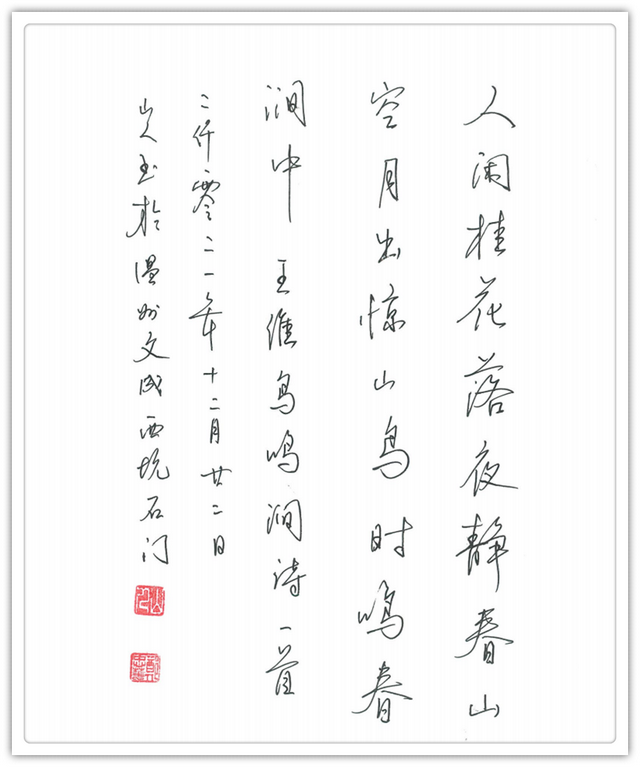 人闲桂花落夜静春山
空月出惊山鸟时鸣春
涧中 王维鸟鸣涧诗一首
二仟零二一年十二月廿二日
山人书於温州文成西坑石门